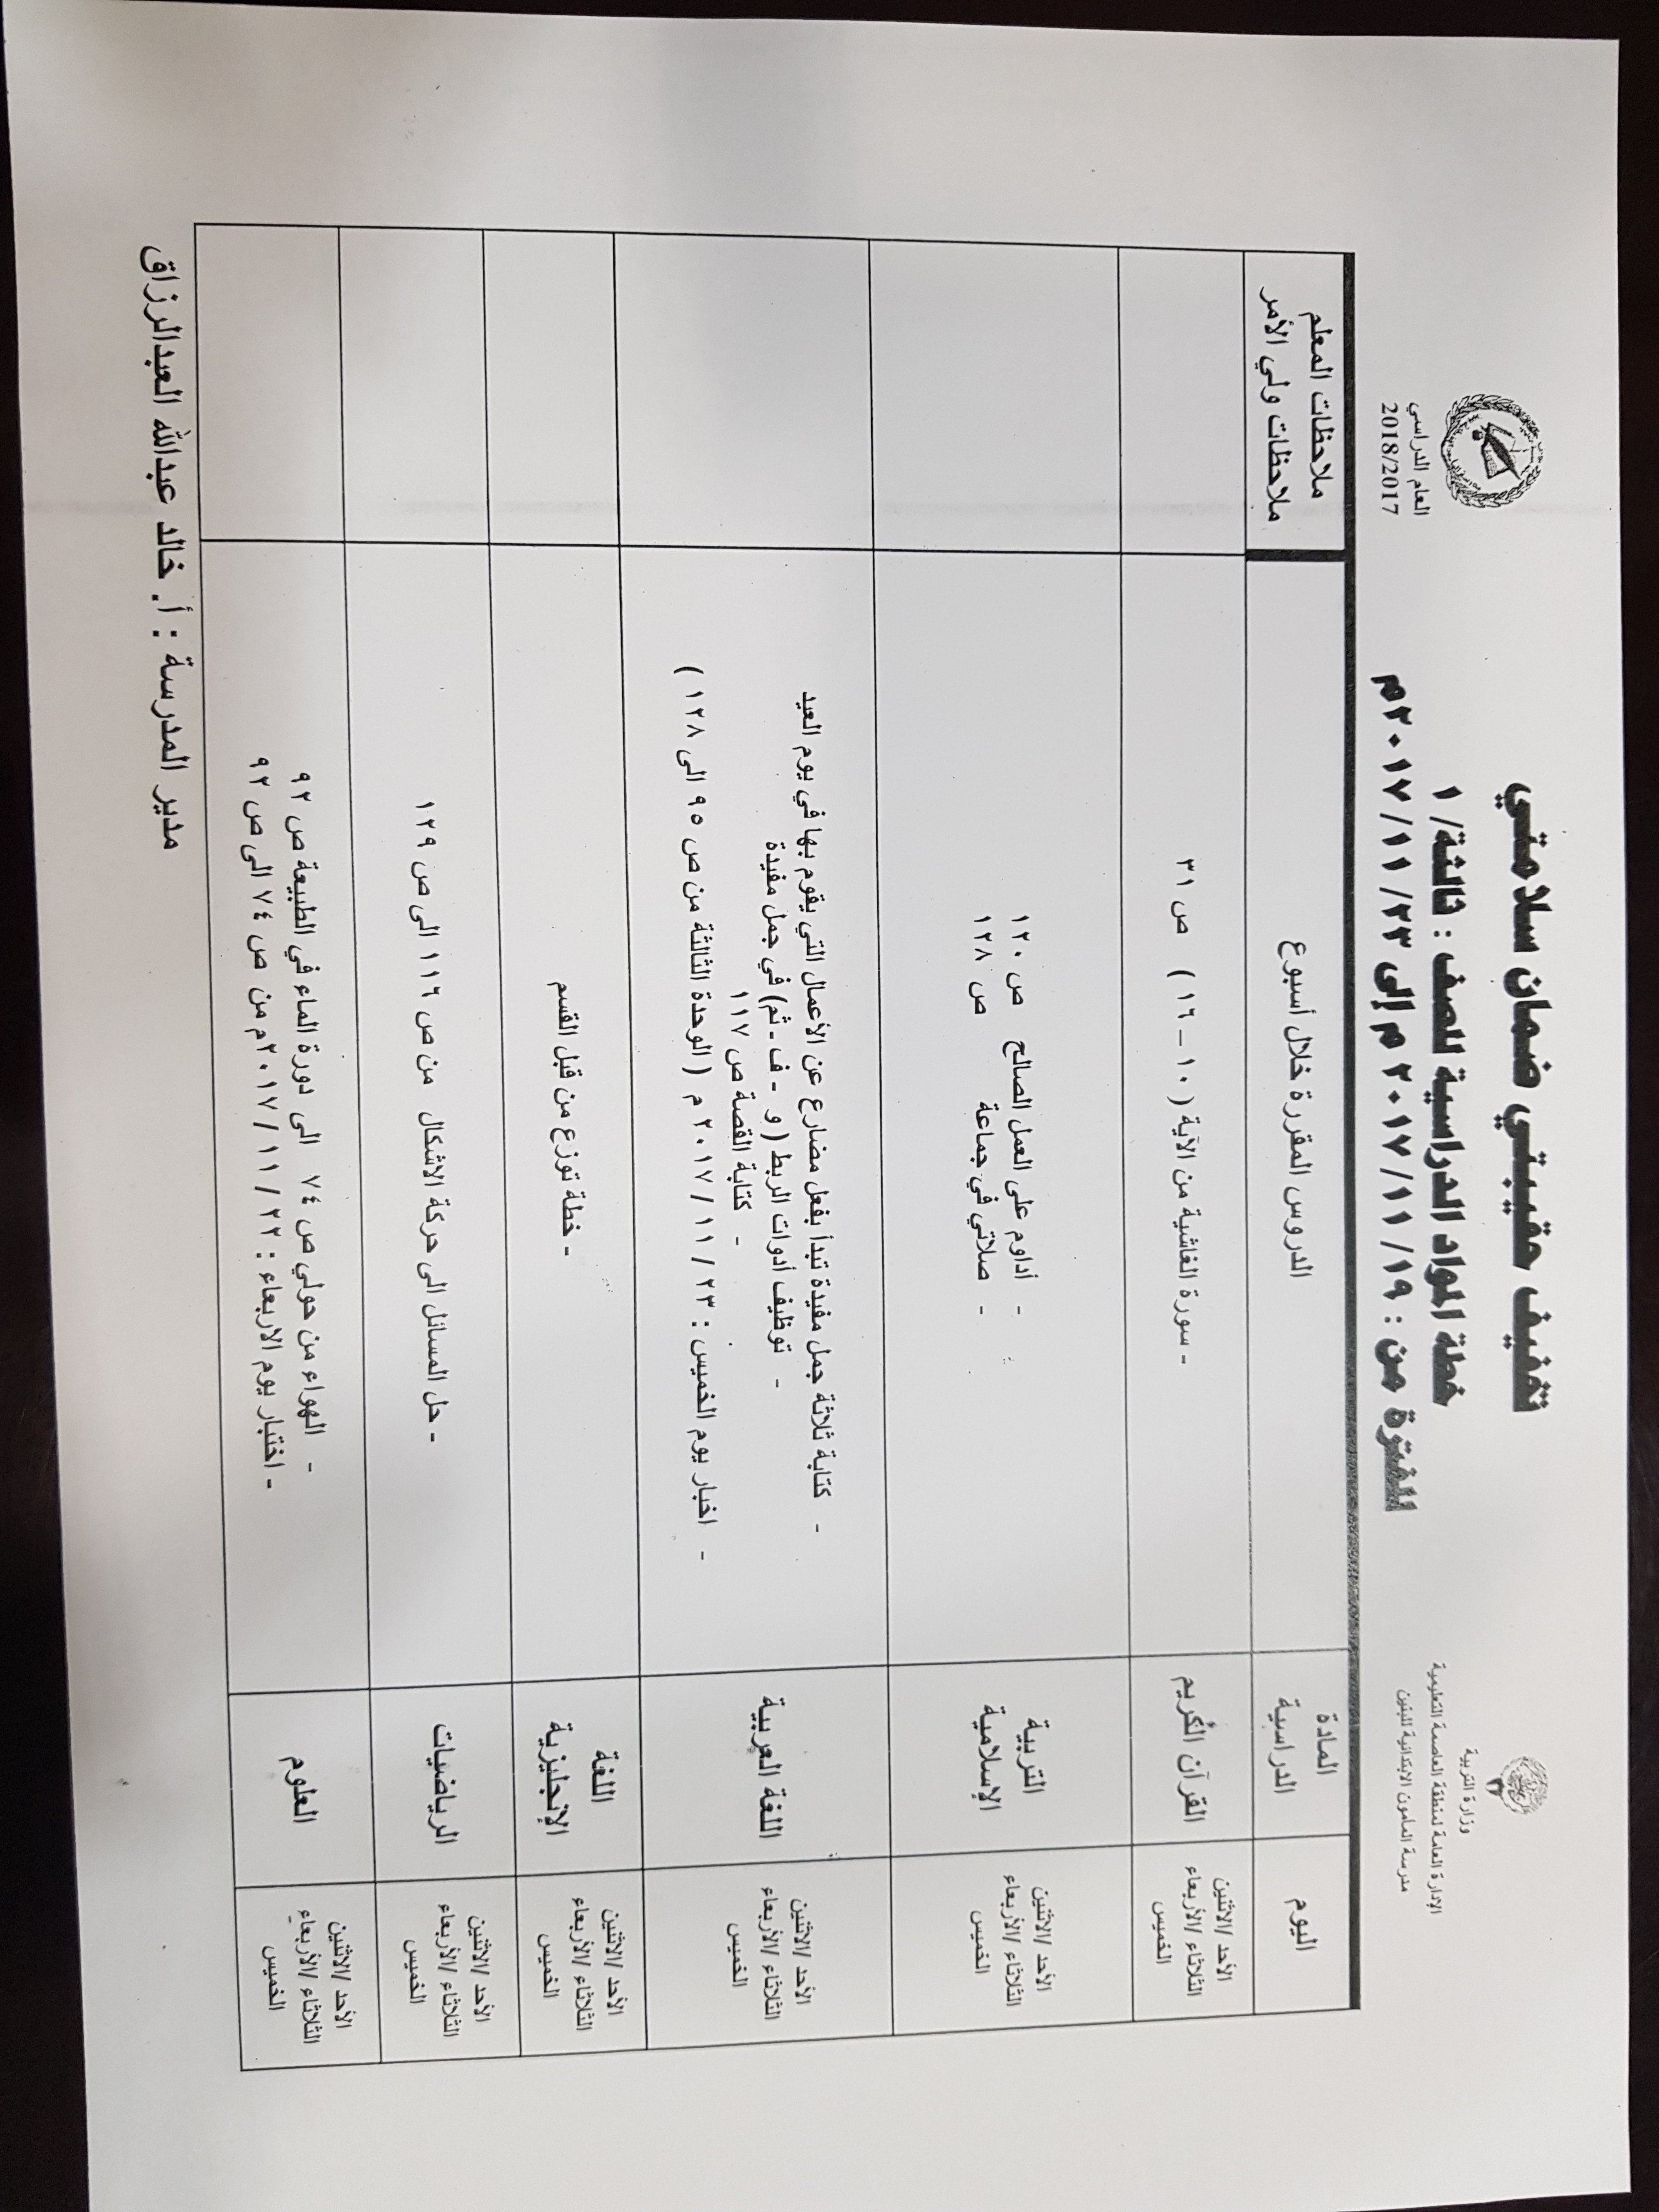 وزارة التربية
الإدارة العامة لمنطقة العاصمة التعليمية
مدرسة المأمون الابتدائية للبنين
تخفيف حقيبتي ضمان سلامتي
خطة المواد الدراسية للصف : ثالثة/ ١
للفترة من : ١٩/ ١١/ ٢٠١٧ م إلى ٢٣/ ١١/ ٢٠١٧م
العام الدراسي
2018/2017
اليوم
المادة
الدراسية
الدروس المقررة خلال أسبوع
ملاحظات المعلم
ملاحظات ولي الأمر
الأحد /الاثنين
الثلاثاء /الأربعاء
الخميس
القرآن الكريم
- سورة الغاشية من الآية ( ١٠ – ١٦ ) ص ٣١
الأحد /الاثنين
الثلاثاء /الأربعاء
الخميس
التربية
الإسلامية
- أداوم على العمل الصالح ص ١٢٠
- صلاتي في جماعة ص ١٢٨
الأحد /الاثنين
الثلاثاء /الأربعاء
الخميس
اللغة العربية
- كتابة ثلاثة جمل مفيدة تبدأ بفعل مضارع عن الأعمال التي يقوم بها في يوم العيد
- توظيف أدوات الربط ( و - ف - ثم) في جمل مفيدة
- كتابة القصة ص ١١٧
- اخبار يوم الخميس : ٢٣ / ١١ / ٢٠١٧ م ( الوحدة الثالثة من ص ٩٥ الى ١٢٨ )
الأحد /الاثنين
الثلاثاء /الأربعاء
الخميس
اللغة
الإنجليزية
- خطة توزع من قبل القسم
الأحد /الاثنين
الثلاثاء /الأربعاء
الخميس
الرياضيات
- حل المسائل الى حركة الاشكال من ص ١١٦ الى ص ١٢٩
الأحد /الاثنين
الثلاثاء /الأربعاء
الخميس
العلوم
- الهواء من حولي ص ٧٤ الى دورة الماء في الطبيعة ص ٩٢
- اختبار يوم الاربعاء : ٢٢ / ١١ / ٢٠١٧م من ص ٧٤ الى ص ٩٢
مدير المدرسة : أ. خالد عبدالله العبدالرزاق